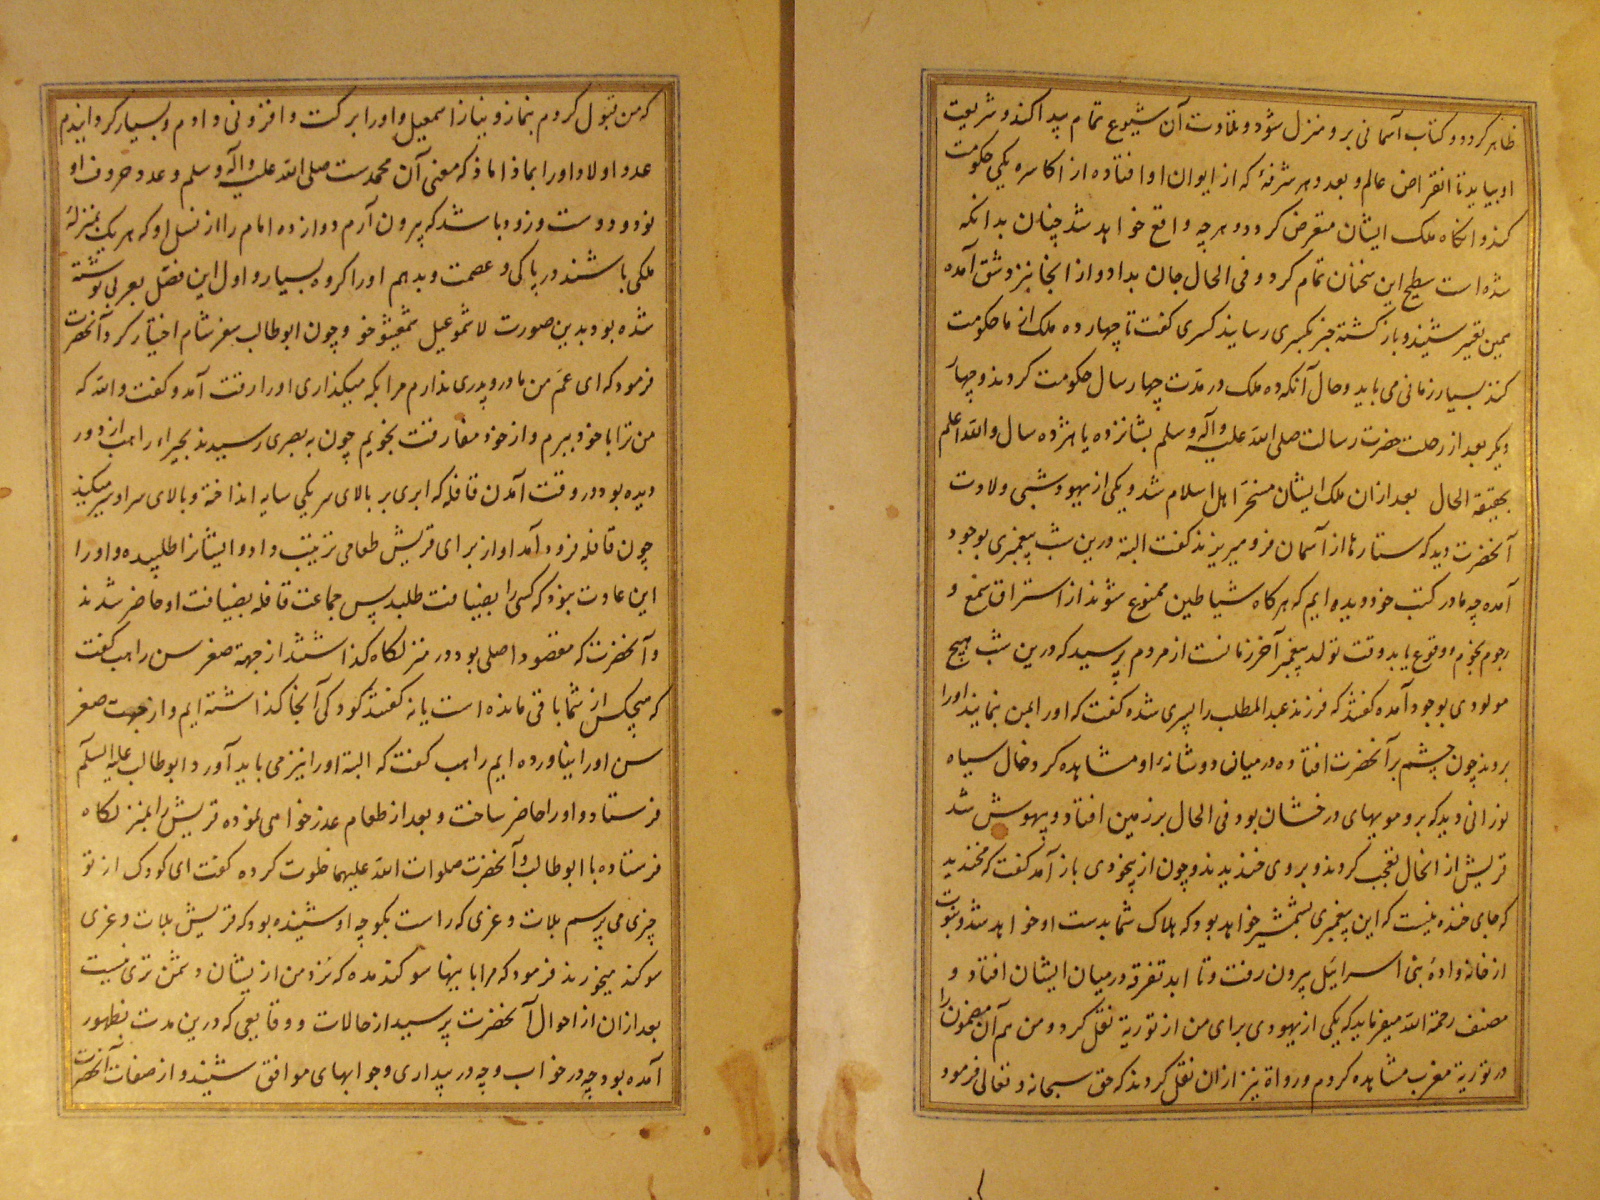 ظاهر کردد و کتاب آسمانی برو منزل شود و بتلاوت آن شیوع تمام پیدا کند و شریعت
او بپاید تا انقراض عالم و بعد و هر شرفهٔ که از ایوان او افتاده از اکاسره یکی حکومت
کند و آنکاه ملک ایشان منقرض کردد و هر چه واقع خواهد شد چنان بدانکه
شده است سطیح این سخنان تمام کرد و فی الحال جان بداد و از انجا بنزد شق آمده
همین تعبیر شنید و باز کشته خبر بکسری رسانید کسری کفت تا چهارده ملک از ما حکومت
کنند بسیار زمانی می باید و حال آنکه ده ملک در مدّت چهار سال حکومت کردند و چهار
دیکر بعد از رحلت حضرت رسالت صلی الله علیه و آله و سلم بشانزده یا هژده سال و الله اعلم
بحقیقة الحال بعد ازان ملک ایشان مسخّر اهل اسلام شد و یکی از یهود شبی ولادت
آنحضرت دید که ستارها از آسمان فرو میریزند کفت البته درین شب پیغمبری بوجود
آمده چه ما در کتب خود دیده ایم که هرکاه شیاطین ممنوع شوند از استراق سمع و
رجوم بنجوم وقوع یابد وقت تولد پیغمبر آخر زمانست از مردم پرسید که درین شب هیچ
مولودی بوجود آمده کفتند که فرزند عبد المطلب را پسری شده کفت که او را بمن بنمایند او را
بردند چون چشم بر آنحضرت افتاده درمیانی دو شانهٔ او مشاهده کرد خال سیاه
نورانی دید که برو مویهای درخشان بود فی الحال بر زمین افتاد و بیهوش شد
قریش از انحال تعجب کردند و بروی خندیدند و چون از بیخودی باز آمد کفت که مخندید
که جای خنده نیست که این پیغمبری بشمشیر خواهد بود که هلاک شما بدست او خواهد شد و نبوت
از خانه وادهٔ بنی اسرائیل بیرون رفت و تا ابد تفرقه درمیان ایشان افتاد و
مصنف رحمة الله میفرماید که یکی از یهودی برای من از توریة نقل کرد و من هم آن مضمون را
در توریة معرب مشاهده کردم و رواة نیز ازان نقل کردند که حق سبحانه و تعالی فرمود
که من قبول کردم بنماز و نیاز اسمعیل و او را برکت و افزونی دادم و بسیار کردانیدم
عدد اولاد او را بماذ اماذ که معنی آن محمدست صلی الله علیه و آله و سلم و عدد حروف او
نود و دوست و زود باشد که بیرون آرم دوازده امام را از نسل او که هر یک بمنزلهٔ
ملکی باشند در پاکی و عصمت و بدهم او را کروه بسیار و اول این فصل بعربی نوشته
شده بود بدین صورت لاشموعیل شمعیثوخو و چون ابوطالب سفر شام اختیار کرد آنحضرت
فرمود که ای عمّ من مادر و پدری ندارم مرا بکه میکذاری او را رقت آمد و کفت و الله که
من ترا با خود ببرم و از خود مفارقت نجویم چون به بصری رسیدند بحیراء راهب از دور
دیده بود در وقت آمدن قافله که ابری بر بالای سر یکی سایه انداخته و بالای سر او سیر میکند
چون قافله فرود آمد او از برای قریش طعامی ترتیب داد و ایشانرا طلبیده و او را
این عادت نبود که کسی را بضیافت طلبد پس جماعت قافله بضیافت او حاضر شدند
و آنحضرت که مقصود اصلی بود در منزلکاه کذاشتند از جهة صغر سن راهب کفت
که هیچکس از شما باقی مانده است یا نه کفتند کودکی آنجا کذاشته ایم و از جهت صغر
سن او را نیاورده ایم راهب کفت که البته او را نیز می باید آورد ابوطالب علیه السلم
فرستاد و او را حاضر ساخت و بعد از طعام عذر خواهی نموده قریش را بمنزلکاه
فرستاده با ابوطالب و آنحضرت صلوات الله علیهما خلوت کرده کفت ای کودک از تو
چیزی می پرسم بلات و عزی که راست بکو چه او شنیده بود که قریش بلات و عزی
سوکند میخورند فرمود که مرا با بینها سوکند مده که نزد من ازیشان دشمن تری نیست
بعد ازان از احوال آنحضرت پرسید از حالات و وقایعی که درین مدت بظهور
آمده بود چه در خواب و چه در بیداری و جوابهای موافق شنید و از صفات آنحضرت